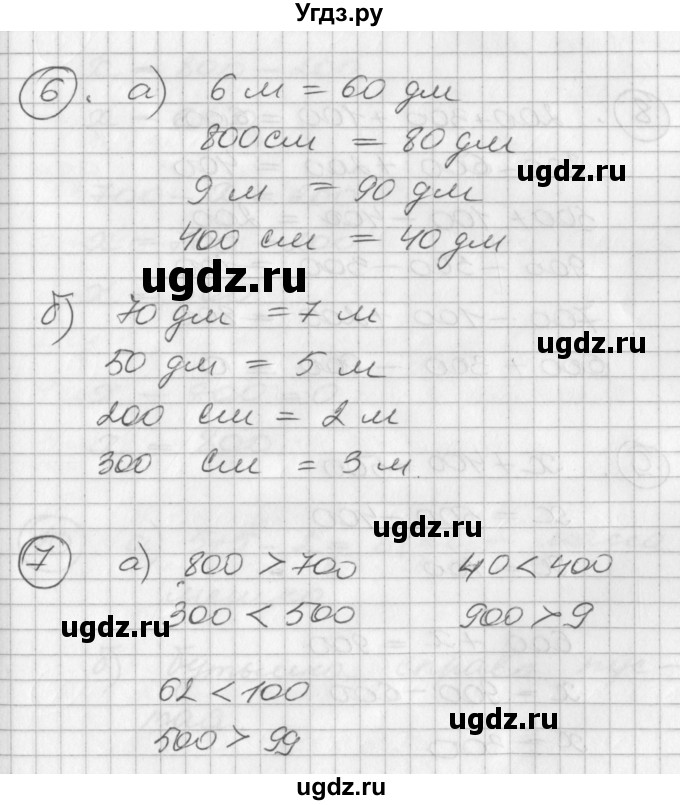 Угдз.ру
6. а) 6 м = 60 дм
800 см = 80 дм
ugdz.ru
9 м = 90 дм
400 см = 40 дм
ugdz.ru
ugdz.ru
б) 70 дм = 7 м
ugdz.ru
50 дм = 5 м
200 см = 2 м
300 см = 3 м
ugdz.ru
7 а) 800 > 700 40 < 400
300 < 500 900 > 9
ugdz.ru
62 < 100
ugdz.ru
500 > 99
ugdz.ru